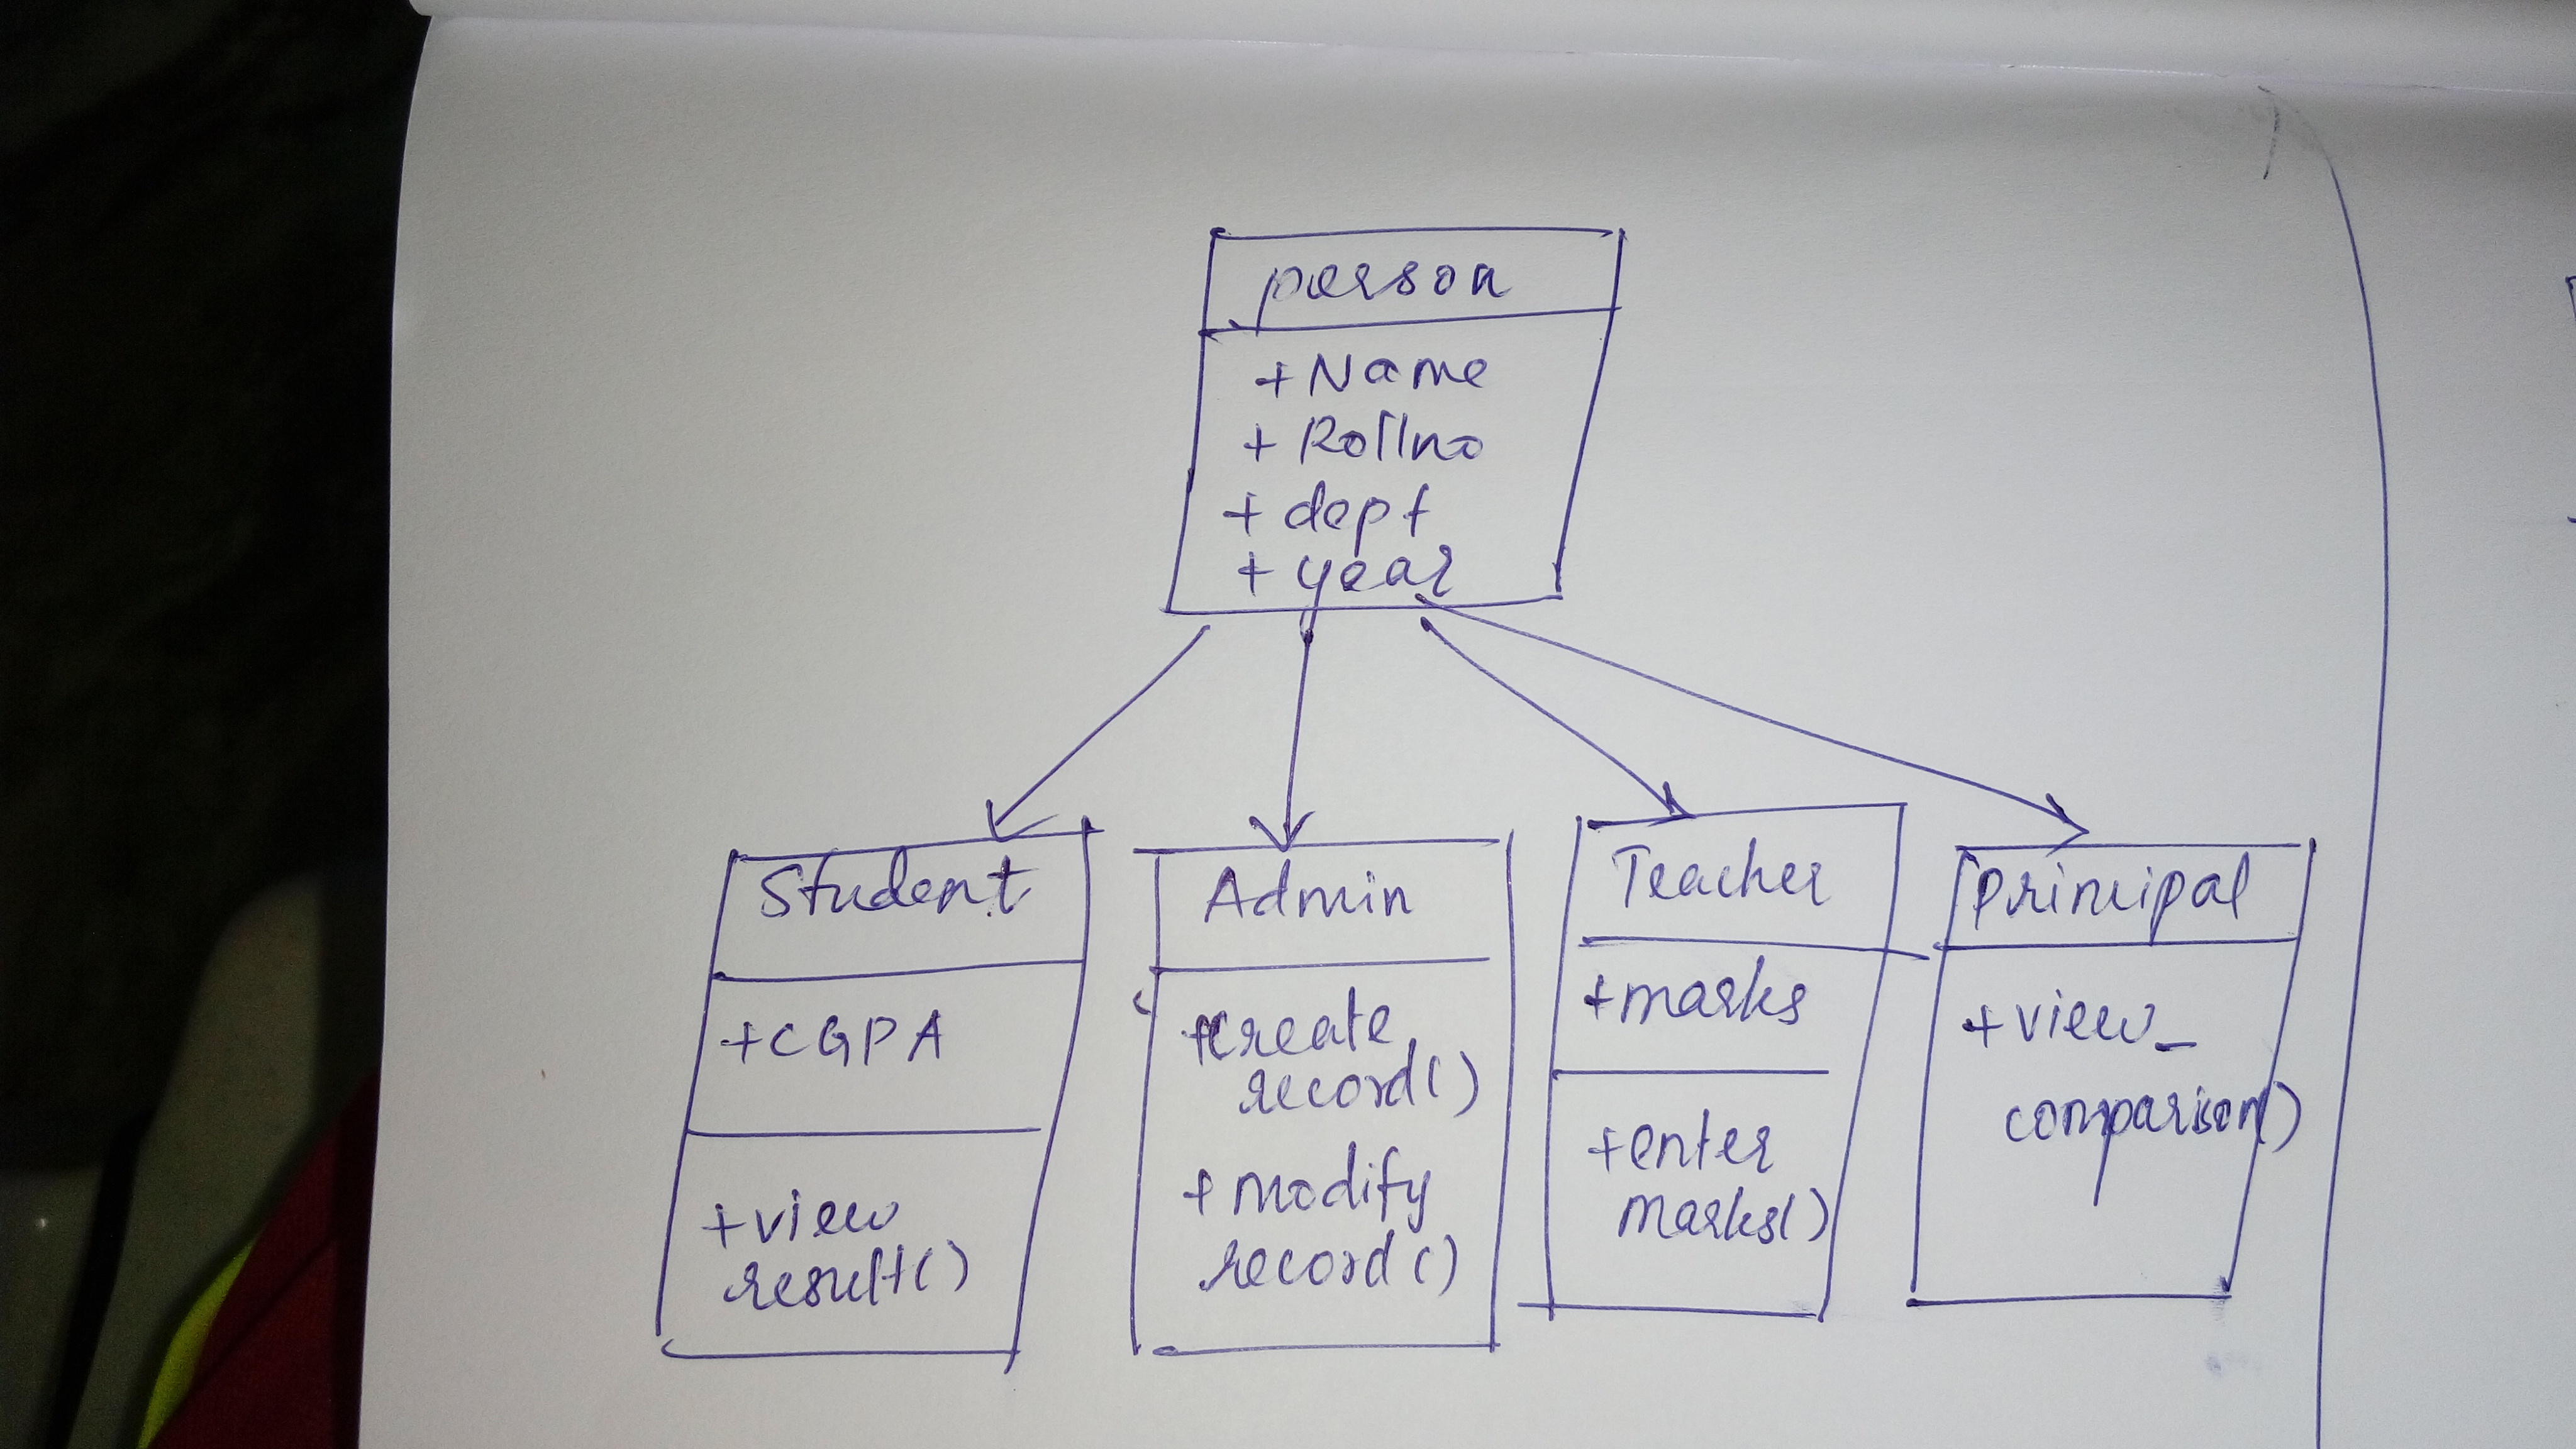 person
+ Name
+ Rollno
+ dept
+ year
Student
+CGPA
+view
result()
Admin
+create
record()
+ modify
record()
Teacher
+marks
+enter
marks()
principal
+view_
comparison()